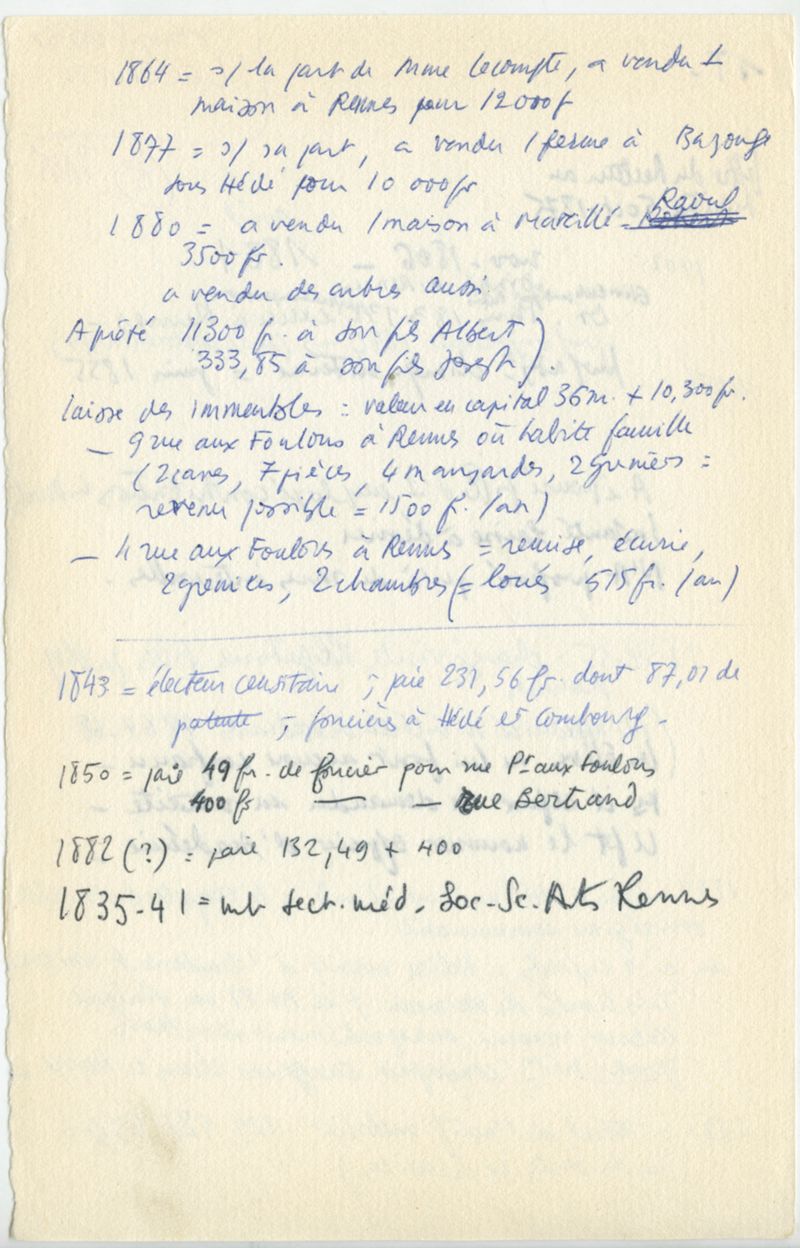 1864 = s/ la part de Mme Lecompte, a vendu 1
maison à Rennes pour 12000f
1877 = s/ sa part, a vendu 1 ferme à Bazouge
sous Hédé pour 10 000 fr
1880 = a vendu 1 maison à Marcillé- Raoul
3500 fr.
a vendu des arbres aussi
A prêté 11300 fr. à son fils Albert )
333,85 à son fils Joseph ).
laisse des immeubles = valeur en capital 36m. + 10,300 fr.
— 9 rue aux Foulons à Rennes où habite famille
(2 caves, 7 pièces 4 mansardes, 2 greniers =
revenu possible = 1500 fr. /an)
— 4 rue aux Foulons à Rennes = remise, écurie,
2 greniers, 2 chambres (= loués 515 fr. /an)
1843 = électeur censitaire ; paie 231,56 fr. dont 87,01 de
patente ; foncières à Hédé et Combourg -
1850 = paie 49 fr. de foncier pour rue Pt aux Foulons
400 fr — — rue Bertrand
1882 (?) = paie 132,49 + 400
1835-41 = mb sect. méd. Soc-Sc. Arts Rennes